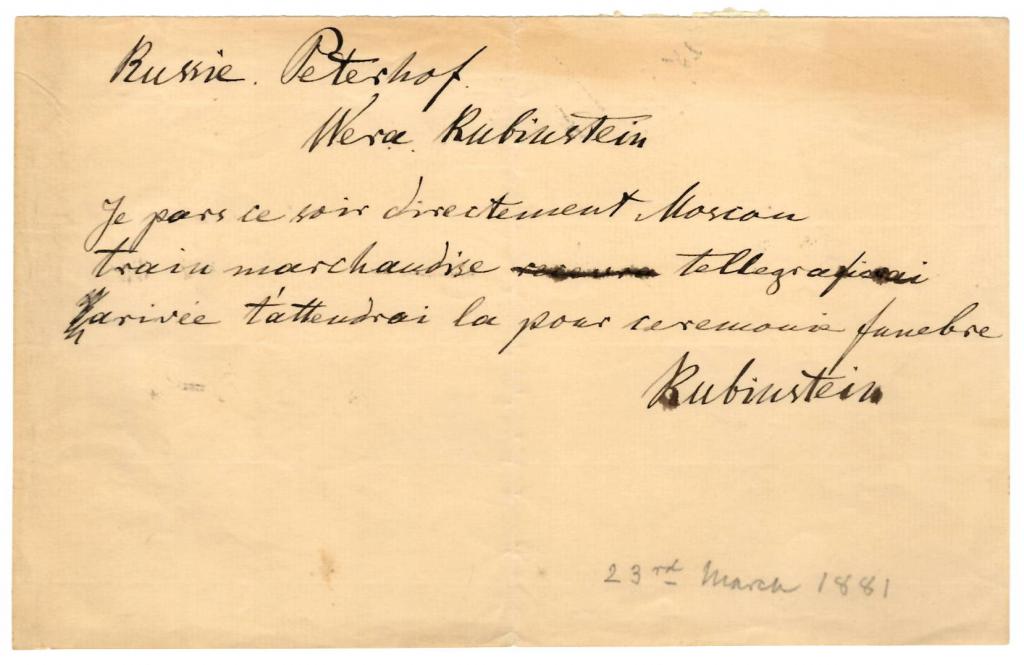 Russie. Peterhof.
Wera Rubinstein
Je pars ce soir directement Moscou
train marchandise tellegrafierai
arivée t'attendrai la pour ceremonie funebre
Rubinstein
23rd March 1881